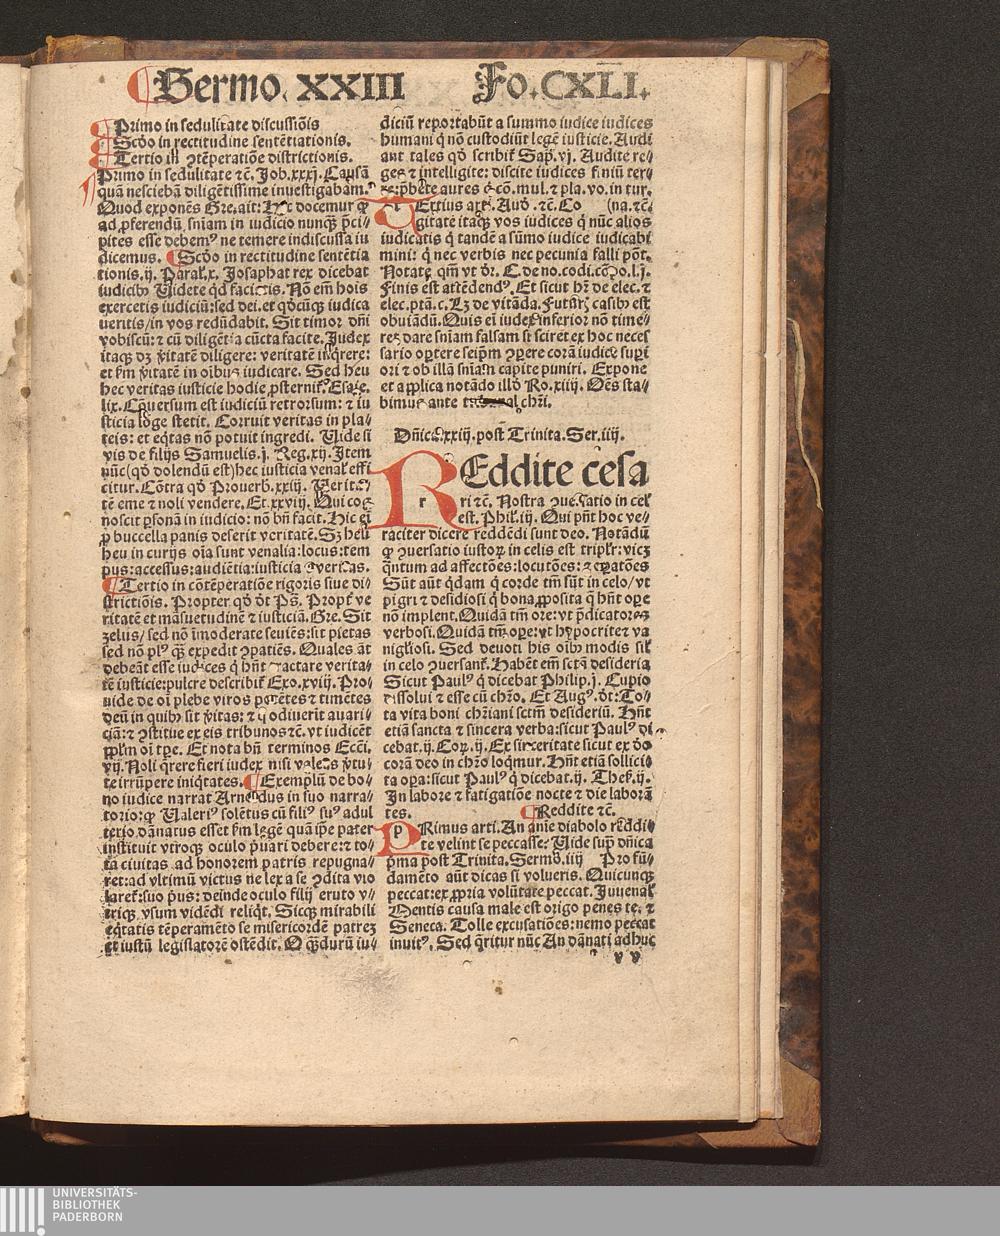 ¶Sermo. XXIII Fo. CXLI.
¶Primo in sedulitate discussiõis
¶Scdo in rectitudine sentẽtiationis.
¶Tertio in ꝯtẽperatiõe districtionis.
Primo in sedulitate ⁊c̃. Job.xxxj. Causã
quã nesciebã diligẽtissime inuestigabam.
Quod exponẽs Gre.ait: Hoc docemur ꝙ
ad ꝓferendũ sñiam in iudicio nunqꝫ p̃ci/
pites esse debemꝰ ne temere indiscussa iu
dicemus. ¶Scdo in rectitudine sentẽtia
tionis.ij. Paral.x. Josaphat rex dicebat
iudicibꝰ Uidete qd faciatis. Nõ em̃ hois
exercetis iudiciũ:sed dei.et qdcũqꝫ iudica
ueritis/in vos redũdabit. Sit timor dñi
vobiscũ: ⁊ cũ diligẽtia cũcta facite. Judex
itaqꝫ dꝫ v̾itatẽ diligere: veritatẽ inq̃rere:
et fm v̾itatẽ in oibus iudicare. Sed heu
hec veritas iusticie hodie ꝓsternit̃. Esaie.
lix. Cõuersum est iudiciũ retrorsum: ⁊ iu
sticia lõge stetit. Corruit veritas in pla/
teis: et eq̃tas nõ potuit ingredi. Uide si
vis de filijs Samuelis.j. Reg.xij. Item
nũc(qd dolendũ est)hec iusticia venal effi
citur. Cõtra qd Prouerb.xxiij. Verita
tẽ eme ⁊ noli vendere. Et.xxviij. Qui cog
noscit ꝑsonã in iudicio: nõ bñ facit. Hic ei
ꝑ buccella panis deserit veritatẽ. Sꝫ heu
heu in curijs oĩa sunt venalia:locus:tem
pus:accessus:audiẽtia:iusticia ⁊ veritas.
¶Tertio in cõtẽperatiõe rigoris siue di/
strictiõis. Propter qd dt Ps. Propt̃ ve
ritatẽ et mãsuetudinẽ ⁊ iusticiã. Gre. Sit
zelus/ sed nõ ĩmoderate seuiẽs:sit pietas
sed nõ plꝰ qꝫ expedit ꝯpatiẽs. Quales añt
debeãt esse iudices q hñt tractare verita/
tẽ iusticie:pulcre describit Exo.xviij. Pro/
uide de oĩ plebe viros potẽtes ⁊ timẽtes
deũ in quibꝰ sit v̾itas: ⁊ q odiuerĩt auari/
ciã:⁊ ꝯstitue ex eis tribunos⁊c̃.vt iudicẽt
ppl̃m oĩ tpe. Et nota bñ terminos Ecci.
vij. Noli q̃rere fieri iudex nisi valeas v̾tu/
te irrũpere iniq̃tates. ¶Exemplũ de bo/
no iudice narrat Arnoldus in suo narra/
torio:ꝙ Ualeriꝰ solẽtus cũ filiꝰ suꝰ adul
terio dãnatus esset fm legẽ quã ip̃e pater
instituit vtroqꝫ oculo p̃uari debere:⁊ to/
ta ciuitas ad honorem patris repugna/
ret:ad vltimũ victus ne lex a se ꝯdita vio
laret̃:suo p̃us: deinde oculo filij eruto v/
triqꝫ vsum vidẽdi reliq̃t. Sicqꝫ mirabili
eq̃tatis tẽperamẽto se misericordẽ patrez
et iustũ legislatorẽ ostẽdit. O q̃duru iu/
diciũ reportabũt a summo iudice iudices
humani q nõ custodiũt legẽ iusticie. Audi
ant tales qd scribit Sap̃.vj. Audite re/
ges ⁊ intelligite: discite iudices finiũ ter/
re:p̃bete aures q cõ.mul.⁊ pla.vo.in tur.
TErtius art̃. Aud̾.⁊c̃.Co (na.⁊c̃.
gitate itaqꝫ vos iudices q nũc alios
iudicatis q tandẽ a sũmo iudice iudicabi
mini: q nec verbis nec pecunia falli põt.
Notate qm̃ vt dr̃. C.de no.codi.cõpo.l.j.
Finis est attẽdendꝰ. Et sicut hr̃ de elec.⁊
elec.ptã.c. Lꝫ de vitãda. Futur̃ casibꝰ est
obuiãdũ. Quis ei iudex inferior nõ time/
rez dare sñiam falsam si sciret ex hoc neces
sario oportere seip̃m ꝯpere corã iudice suꝑi
ori ⁊ ob illã sñiam capite puniri. Expone
et applica notãdo illd̾ Ro.xiiij. Oẽs sta/
bimus ante tribunal chr̃i.
Dñica.xxiij.post Trinita. Ser.iiij.
REddite cesa
ri ⁊c̃. Nostra ꝯuersatio in cel
est. Phil.iij. Qui pñt hoc ve/
raciter dicere reddẽdi sunt deo. Notãdũ
ꝙ ꝯuersatio iustoꝝ in celis est tripl̃r: vicꝫ
q̃ntum ad affectões:locutões: ⁊ oꝑatões
Sũt aũt q̃dam q corde tm̃ sũt in celo/vt
pigri ⁊ desidiosi q bona ꝓposita q hñt oꝑe
nõ implent. Quidã tm̃ ore: vt p̃dicatores
verbosi. Quidã tm̃ oꝑe:vt hypocrite ⁊ va
nigl̃iosi. Sed deuoti his oibꝰ modis sil̃
in celo ꝯuersant̃. Habẽt em̃ sctã desideria
Sicut Paulꝰ q dicebat Philip.j. Cupio
dissolui ⁊ esse cũ chr̃o. Et Augꝰ.dt: To/
ta vita boni chr̃iani sctm̃ desideriũ. Hñt
etiã sancta ⁊ sincera verba:sicut Paulꝰ di
cebat.ij. Coꝝ.ij. Ex sinceritate sicut ex do
corã deo in chr̃o loq̃mur. Hñt etiã sollici
ta oꝑa:sicut Paulꝰ q dicebat.ij. Thes̃.ij.
In labore ⁊ fatigatiõe nocte ⁊ die laborã
tes. ¶Reddite ⁊c̃.
PRimus arti. An anĩe diabolo reddi
te velint se peccasse: Uide sup̃ dñica
p̃ma post Trinita. Sermõ.iij Pro fũ/
damẽto aũt dicas si volueris. Quicunqꝫ
peccat:ex ꝓpria volũtate peccat. Juuenal
Mentis causa male est origo penes te. ⁊
Seneca. Tolle excusatiões: nemo peccat
inuitꝰ. Sed q̃ritur nũc An dãnati adhuc
v v
UNIVERSITÄTS-
BIBLIOTHEK
PADERBORN